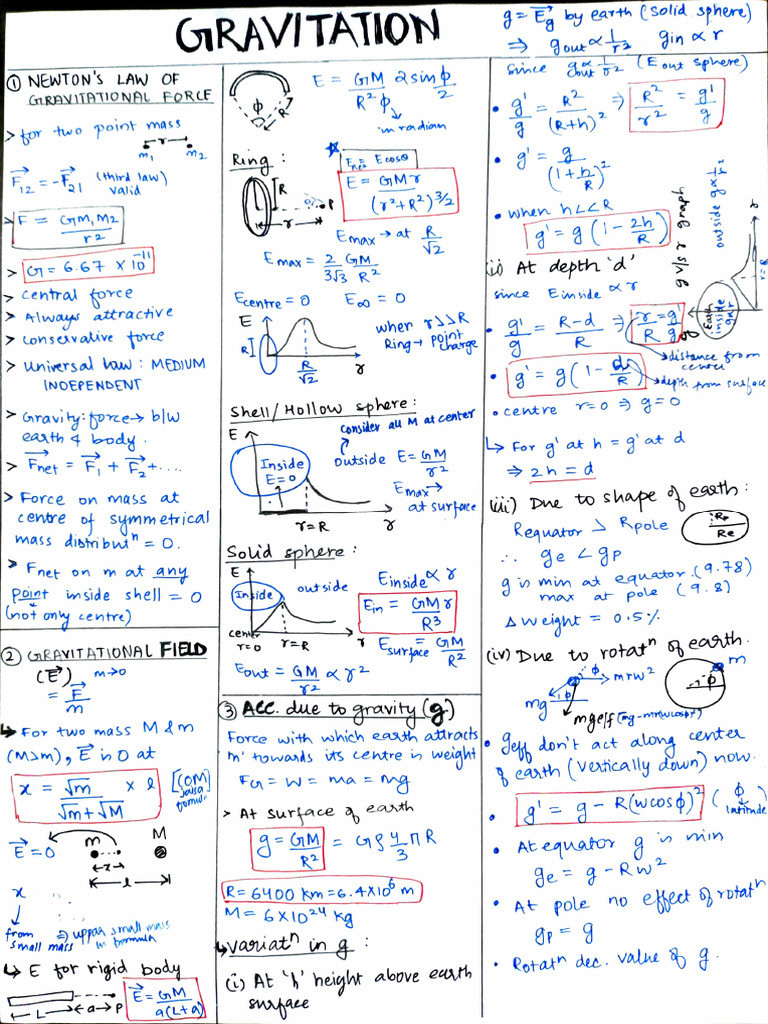 GRAVITATION
① NEWTON'S LAW OF
GRAVITATIONAL FORCE
> for two point mass
r
m₁ m₂
> F⃗₁₂ = -F⃗₂₁ (third law)
valid
> F = GM₁M₂/r²
> G = 6.67 × 10⁻¹¹
> Central force
> Always attractive
> Conservative force
> Universal law : MEDIUM
INDEPENDENT
> Gravity: force → b/w
earth & body.
> F⃗net = F⃗₁ + F⃗₂ + ....
> Force on mass at
centre of symmetrical
mass distributⁿ = 0.
> Fnet on m at any
point inside shell = 0
(not only centre)
② GRAVITATIONAL FIELD
(E⃗) m→0
= F⃗/m
↳ For two mass M & m
(M>m), E⃗ is 0 at
x = √m/(√m+√M) × l [COM
jaisa
formula]
E⃗ = 0 m M
x
l
x
↓
from small mass ⇒ upper small mass
in formula
↳ E for rigid body
L a P
E⃗ = GM/a(L+a)
φ R
E = GM/R²φ 2 sin φ/2
in radian
Ring :
Enet = E cosθ
R r P
E = GMr/(r²+R²)^3/2
Emax → at R/√2
Emax = 2/3√3 GM/R²
Ecentre = 0 E∞ = 0
E
R
R/√2 r
when r>>R
Ring → point
charge
Shell/Hollow sphere :
consider all M at center
E
Inside
E=0
outside E = GM/r²
Emax →
at surface
r=R r
Solid sphere :
E
Inside outside
center
r=0 r=R r
Einside ∝ r
Ein = GMr/R³
Esurface = GM/R²
Eout = GM/r² ∝ r²
③ ACC. due to gravity (g)
Force with which earth attracts
'm' towards its centre is weight
FG = W = ma = mg
> At surface of earth
g = GM/R² = Gρ 4/3 πR
R = 6400 km = 6.4×10⁶ m
M = 6×10²⁴ kg
↳ variatⁿ in g :
(i) At 'h' height above earth
surface
g = E⃗g by earth (solid sphere)
⇒ gout ∝ 1/r² gin ∝ r
since gout ∝ 1/r² (E out sphere)
• g'/g = R²/(R+h)² ⇒ R²/r² = g'/g
• g' = g/(1+h/R)²
• when h<<R
g' = g(1 - 2h/R)
g v/s r graph
outside g∝1/r²
Earth
inside
g∝r
r=R
r
g
(ii) At depth 'd'
since Einside ∝ r
• g'/g = R-d/R ⇒ r/R = g'/g
distance from
center
• g' = g(1 - d/R)
depth from surface
• centre r=0 ⇒ g=0
↳ For g' at h = g' at d
⇒ 2h = d
(iii) Due to shape of earth :
Requator > Rpole
Rp
Re
∴ ge < gp
g is min at equator (9.78)
max at pole (9.8)
Δ weight = 0.5%
(iv) Due to rotatⁿ of earth.
φ mrω²
mg φ
mgeff (mg-mr(ωcosφ)²)
m
φ
• geff don't act along center
of earth (vertically down) now.
• g' = g - R(ωcosφ)² (φ
latitude)
• At equator g is min
ge = g - Rω²
• At pole no effect of rotatⁿ
gp = g
• Rotatⁿ dec. value of g.